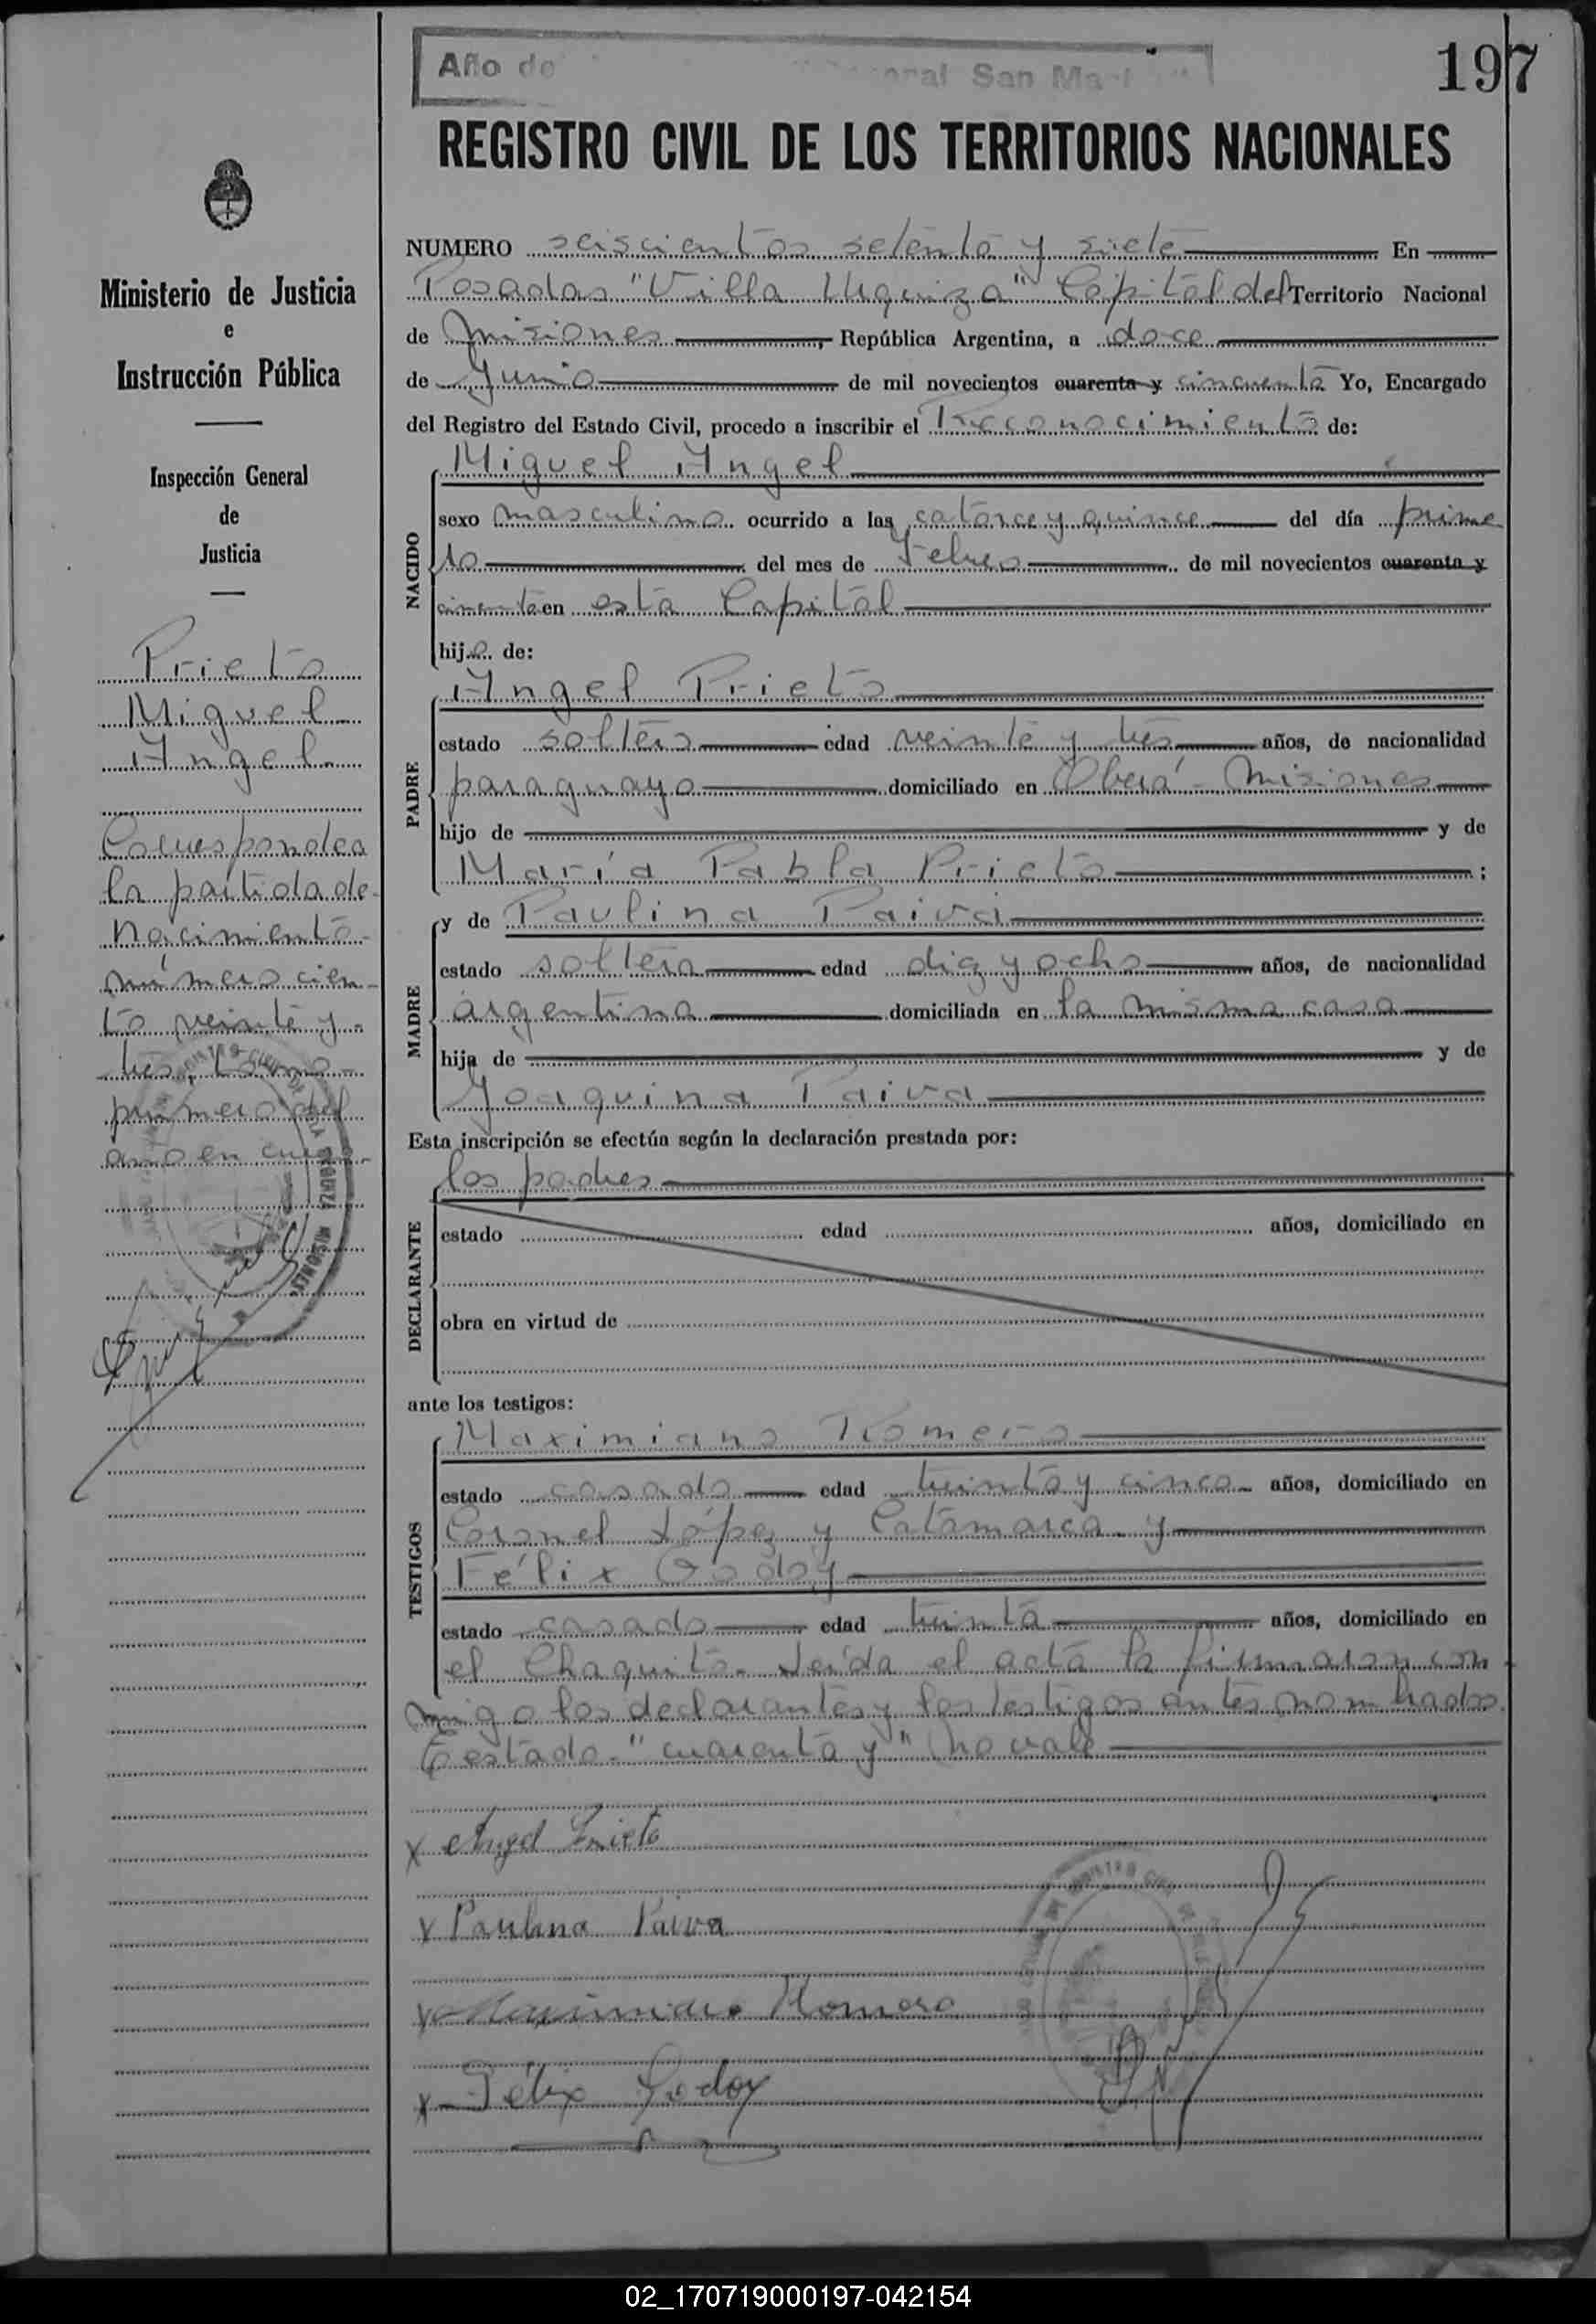 Año de General San Martín
197
REGISTRO CIVIL DE LOS TERRITORIOS NACIONALES
Ministerio de Justicia
e
Instrucción Pública
Inspección General
de
Justicia
Prieto
Miguel
Angel
Corresponde a
la partida de
nacimiento
número cien-
to veinte y
tres, tomo
primero del
año en curso
NUMERO seiscientos setenta y siete En
Posadas "Villa Urquiza" Capital del Territorio Nacional
de Misiones, República Argentina, a doce
de Junio de mil novecientos cuarenta y cincuenta Yo, Encargado
del Registro del Estado Civil, procedo a inscribir el Reconocimiento de:
NACIDO
Miguel Angel
sexo masculino ocurrido a las catorce y quince del día prime
ro del mes de Febrero de mil novecientos cuarenta y
cincuenta en esta Capital
hijo de:
PADRE
Angel Prieto
estado soltero edad veinte y tres años, de nacionalidad
paraguayo domiciliado en Oberá - Misiones
hijo de y de
María Pabla Prieto ;
MADRE
y de Paulina Paiva
estado soltera edad diez y ocho años, de nacionalidad
argentina domiciliada en la misma casa
hija de y de
Joaquina Paiva
Esta inscripción se efectúa según la declaración prestada por:
DECLARANTE
los padres
estado edad años, domiciliado en
obra en virtud de
ante los testigos:
TESTIGOS
Maximiano Romero
estado casado edad treinta y cinco años, domiciliado en
Coronel López y Catamarca y
Félix Godoy
estado casado edad treinta años, domiciliado en
el Chaquito. Leída el acta la firmaron con
migo los declarantes y los testigos antes nombrados
Testado "cuarenta y" no vale
x Angel Prieto
x Paulina Paiva
x Maximiano Romero
x Félix Godoy
02_170719000197-042154